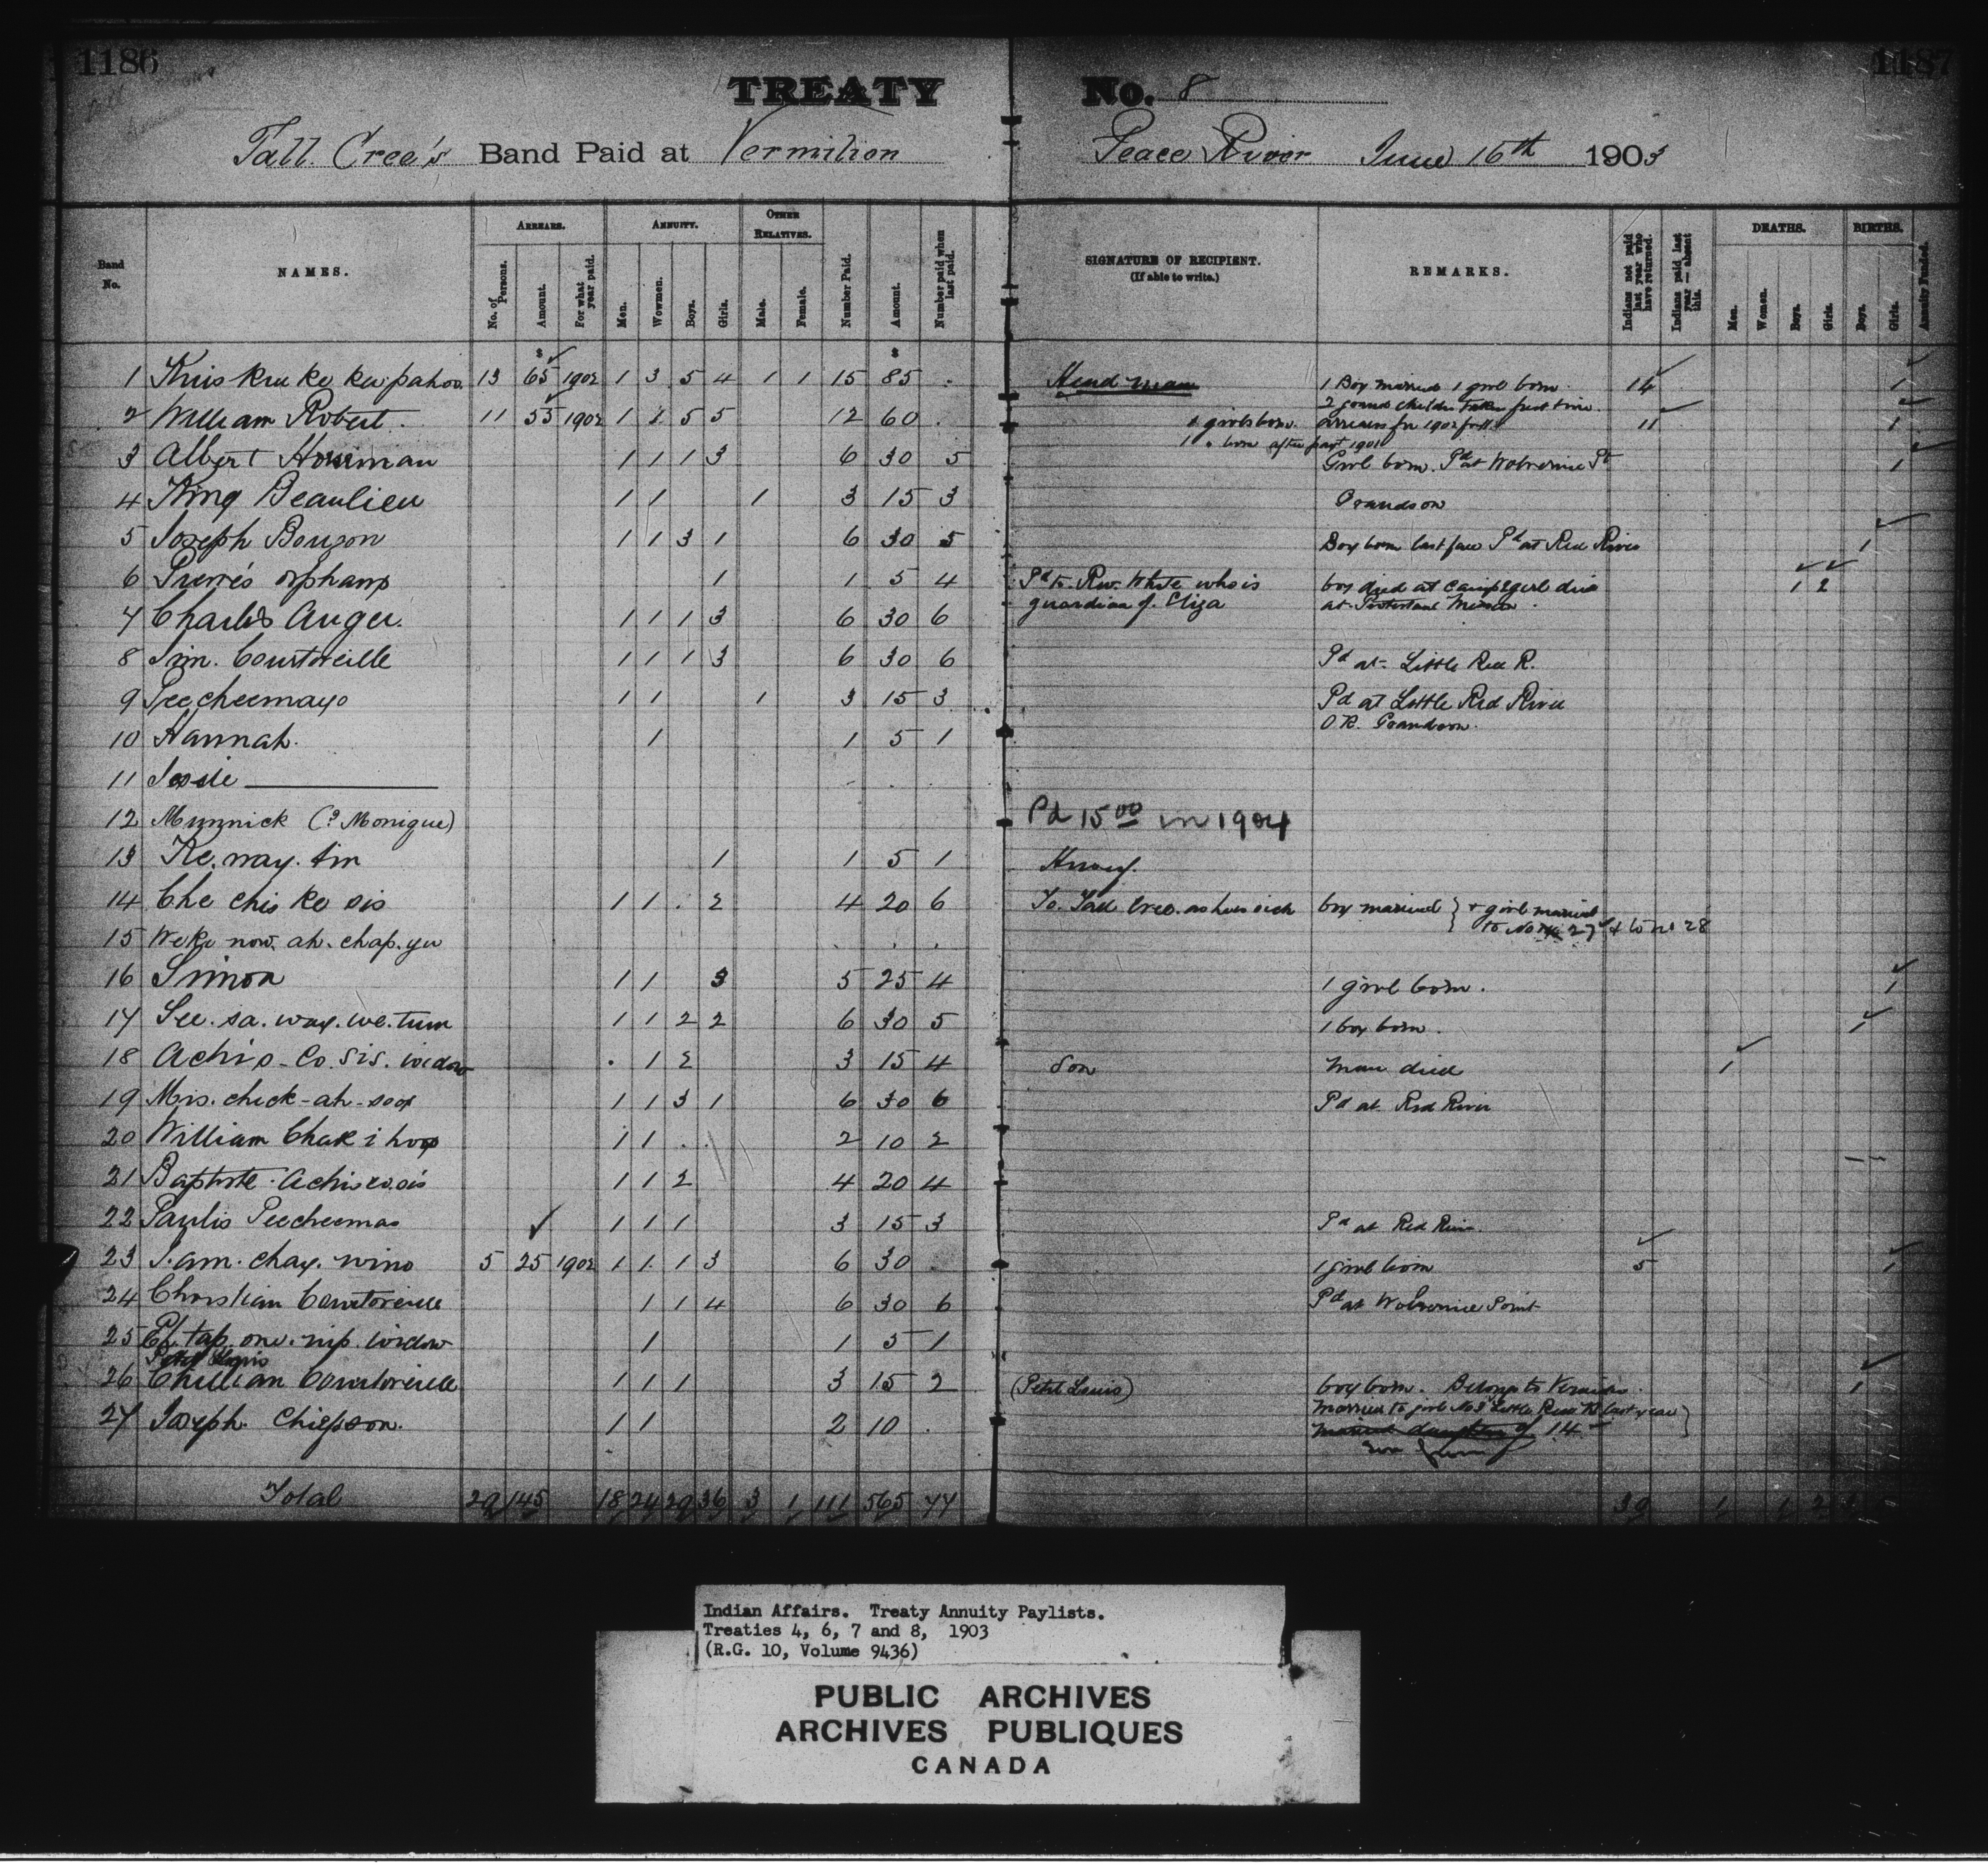 1186
1187
TREATY No. 8
Tall Cree's Band Paid at Vermilion Peace River June 16th 1903
Band No.
NAMES.
ARREARS.
No. of Persons.
Amount.
For what year paid.
ANNUITY.
Men.
Women.
Boys.
Girls.
OTHER RELATIVES.
Male.
Female.
Number Paid.
Amount.
Number paid when last paid.
SIGNATURE OF RECIPIENT.
(If able to write.)
REMARKS.
Indians not paid last year who have returned.
Indians paid last year — absent this.
DEATHS.
Men.
Women.
Boys.
Girls.
BIRTHS.
Boys.
Girls.
Annuity Funded.
1 13 65 1902 1 3 5 4 1 1 15 85 Head man 1 Boy married 1 girl born 1
2 grand children taken first time
2 William Robert 11 55 1902 1 1 5 5 12 60 girls born. arrears for 1902 11 1
1 born after payt 1901
3 Albert 1 1 1 3 6 30 5 Girl born. Pd at Wolverine Pt 1
4 King Beaulieu 1 1 1 3 15 3 Grandson
5 Joseph 1 1 3 1 6 30 5 Boy born last year Pd at Red River 1
6 Pierre's orphans 1 1 5 4 Pd to Rev. White who is boy died at camp 2 girl die 1 2
guardian of Eliza at Protestant Mission
7 Charles Auger. 1 1 1 3 6 30 6
8 Jim. Courtoreille 1 1 1 3 6 30 6 Pd at Little Red R.
9 Peecheemayo 1 1 1 3 15 3 Pd at Little Red River
O.K. Grandson.
10 Hannah. 1 1 5 1
11
12 Munnick (? Monique) Pd 15 00 in 1904
13 Ke. way. tin 1 1 5 1
14 Che chis ke sis 1 1 2 4 20 6 To Tall Cree. as he is sick boy married } + girl married
to No 27 & to no 28
15 We ke now. ah. chap. yu
16 Simon 1 1 3 5 25 4 1 girl born. 1
17 See. sa. way. we. tum 1 1 2 2 6 30 5 1 boy born. 1
18 Achis-Co. sis. widow 1 2 3 15 4 Son man died 1
19 Mis. chick-ah-soos 1 1 3 1 6 30 6 Pd at Red River
20 William 1 1 2 10 2
21 Baptiste 1 1 2 4 20 4
22 Paulis Peecheemao 1 1 1 3 15 3 Pd at Red River
23 5 25 1902 1 1 1 3 6 30 1 girl born 5 1
24 Christian Courtoreille 1 1 4 6 30 6 Pd at Wolverine Point
25 tap. one. nip. widow 1 1 5 1
Petit Louis
26 Courtoreille 1 1 1 3 15 2 (Petit Louis) boy born. Belongs to 1
27 Joseph Chiefson. 1 1 2 10 Married to girl No 3 Little Red R last year
Married daughter of 14
Total 29 145 18 24 29 36 3 1 111 565 77 1 1 2
Indian Affairs. Treaty Annuity Paylists.
Treaties 4, 6, 7 and 8, 1903
(R.G. 10, Volume 9436)
PUBLIC ARCHIVES
ARCHIVES PUBLIQUES
CANADA